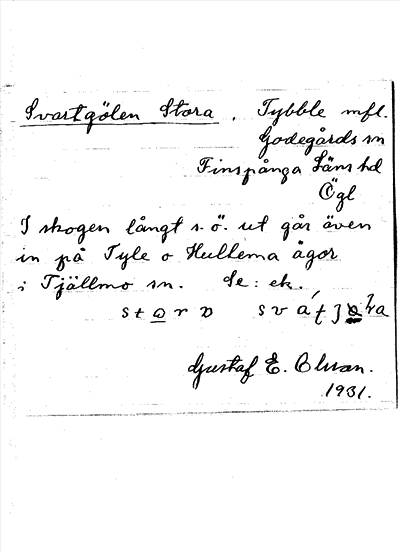 Svartgölen Stora, Tybble mfl.
Godegårds sn
Finspånga Läns hd
Ögl
I skogen långt s.ö. ut går även
in på Tyle o Hullema ägor
i Tjällmo sn. Se: ek.
Gustaf E. Olsson.
1931.